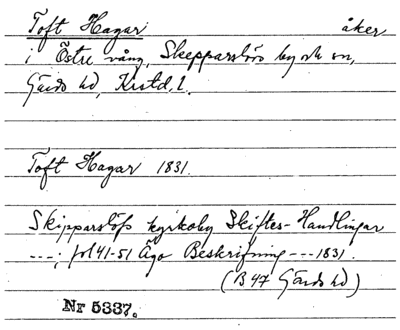 Toft Hagar åker
i Östre vång, Skepparslövs by och sn,
Gärds hd, Krstd. l.
Toft Hagar 1831.
Skipparslöfs kyrkoby Skiftes-Handlingar
---; fol 41-51 Ägo Beskrifning --- 1831.
(B 47 Gärds hd)
Nr 5337.